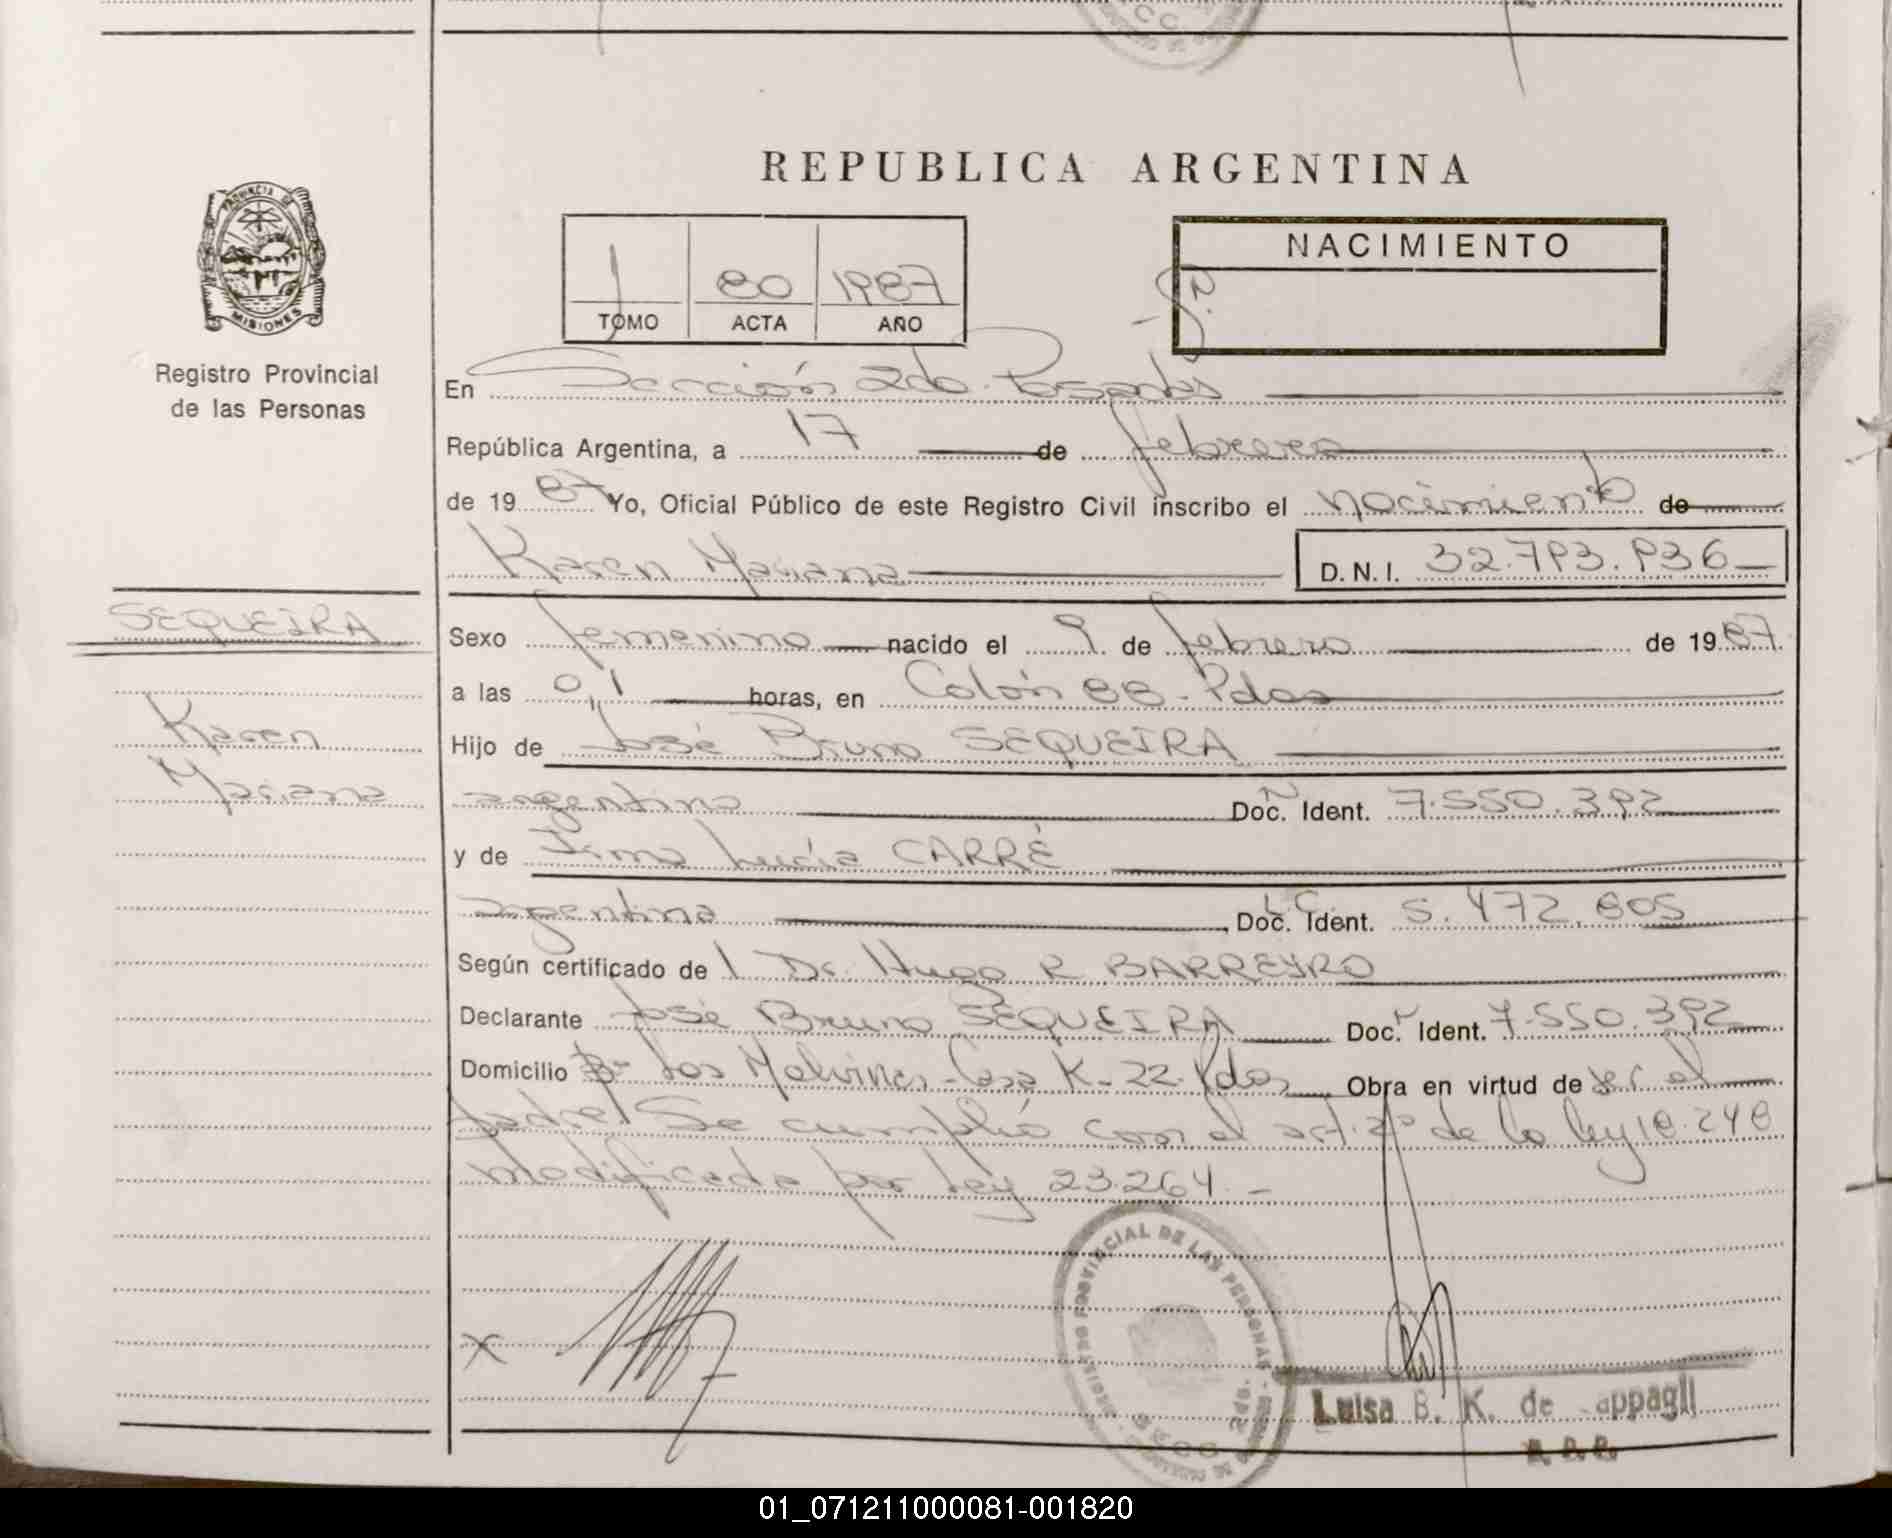 REPUBLICA ARGENTINA
PROVINCIA DE
MISIONES
Registro Provincial
de las Personas
1 80 1987
TOMO ACTA AÑO
NACIMIENTO
En Sección 2do. Posadas
República Argentina, a 17 de febrero
de 1987 Yo, Oficial Público de este Registro Civil inscribo el nacimiento de
Karen Mariana D.N.I. 32.793.936
SEQUEIRA
Karen
Mariana
Sexo femenino nacido el 9 de febrero de 1987
a las 0,1 horas, en Colón 88 - Pdas
Hijo de José Bruno SEQUEIRA
argentino Doc. Ident. 7.550.392
y de Irma Lucía CARRÉ
argentina L.C. Doc. Ident. 5.472.805
Según certificado del Dr. Hugo R BARREYRO
Declarante José Bruno SEQUEIRA Doc. Ident. 7.550.392
Domicilio Bº Las Malvinas - Casa K-22. Pdas Obra en virtud de ser el
padre/ Se cumplió con el art. 2º de la ley 18.248
modificada por Ley 23.264.-
X
REGISTRO PROVINCIAL DE LAS PERSONAS
Luisa B. K. de
01_071211000081-001820